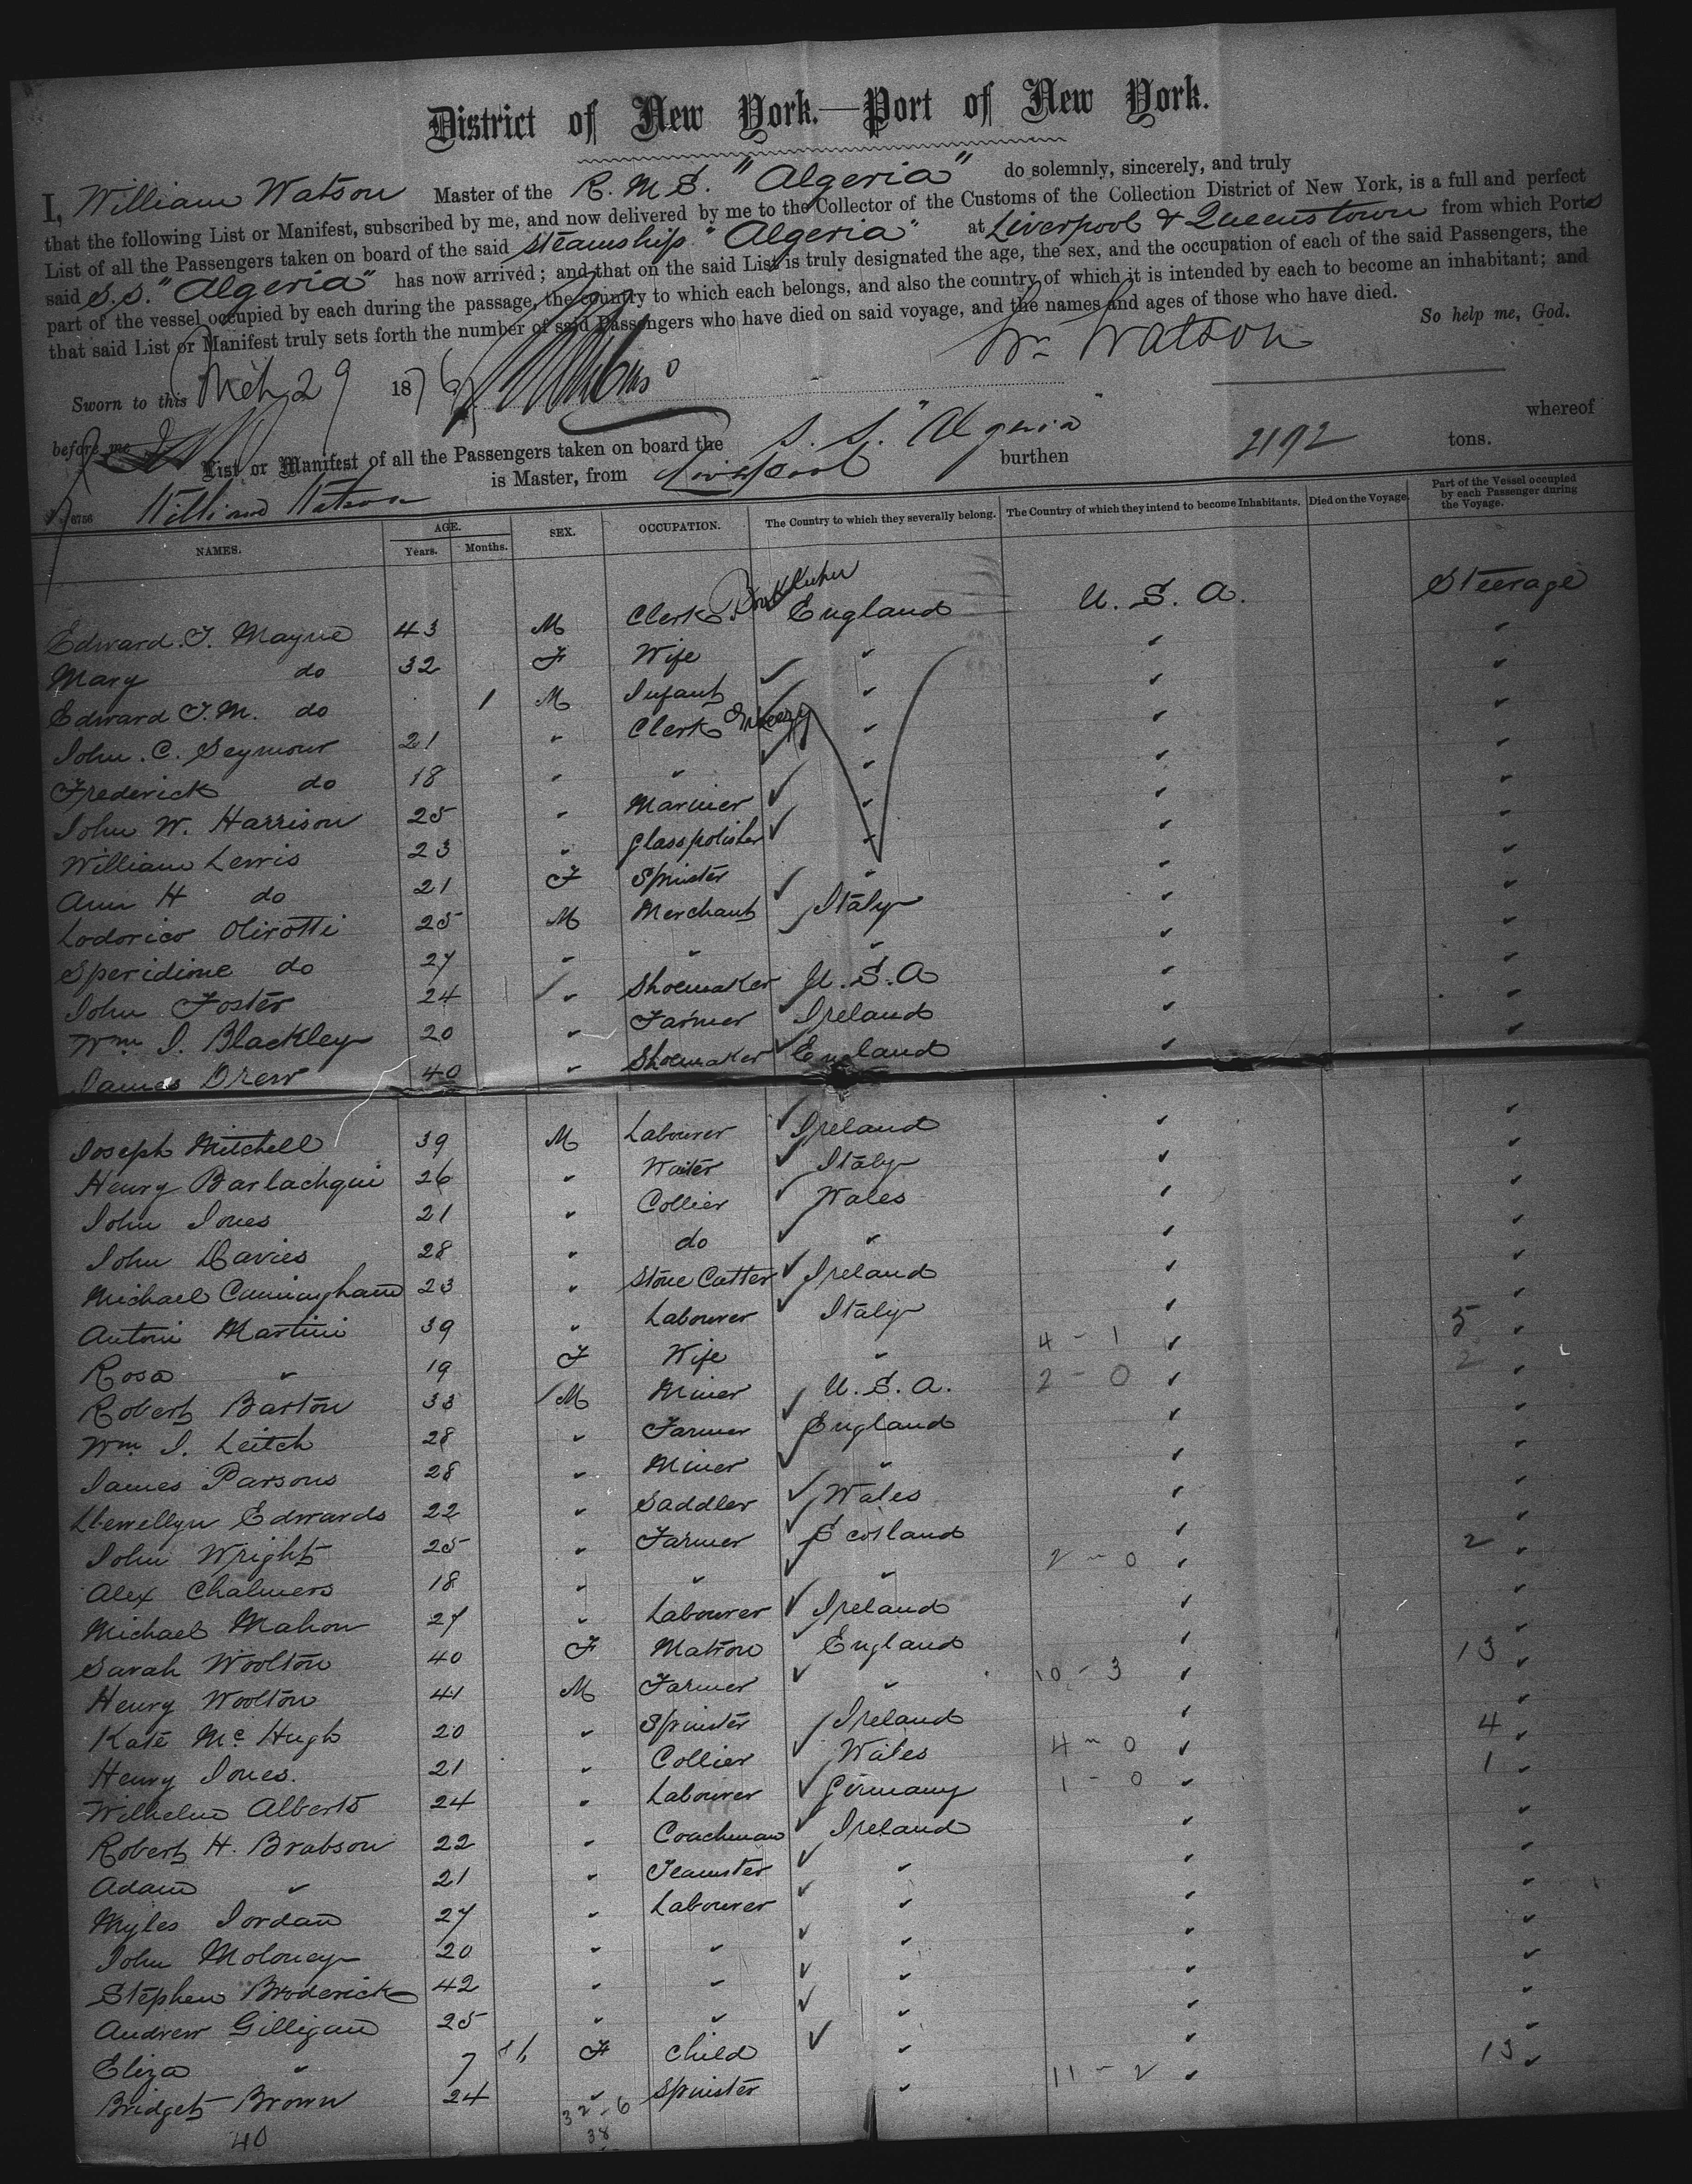 District of New York.—Port of New York.
I, William Watson Master of the R. M. S. "Algeria" do solemnly, sincerely, and truly
that the following List or Manifest, subscribed by me, and now delivered by me to the Collector of the Customs of the Collection District of New York, is a full and perfect
List of all the Passengers taken on board of the said steamship "Algeria" at Liverpool & Queenstown from which Ports
said S.S. "Algeria" has now arrived; and that on the said List is truly designated the age, the sex, and the occupation of each of the said Passengers, the
part of the vessel occupied by each during the passage, the country to which each belongs, and also the country of which it is intended by each to become an inhabitant; and
that said List or Manifest truly sets forth the number of said Passengers who have died on said voyage, and the names and ages of those who have died.
So help me, God.
Wm Watson
Sworn to this Mch 29 1876
before me
List or Manifest of all the Passengers taken on board the S. S. "Algeria" whereof
William Watson is Master, from Liverpool burthen 2192 tons.
6756
NAMES. AGE. Years. Months. SEX. OCCUPATION. The Country to which they severally belong. The Country of which they intend to become Inhabitants. Died on the Voyage. Part of the Vessel occupied by each Passenger during the Voyage.
Edward. T. Mayne 43 M Clerk Bookkeeper England U. S. A. Steerage
Mary do 32 F Wife " " "
Edward T. M. do 1 M Infant " " "
John. C. Seymour 21 " Clerk " " "
Frederick do 18 " " " " "
John W. Harrison 25 " Mariner " " "
William Lewis 23 " Glasspolisher " " "
Ann H do 21 F Spinster " " "
Lodorico Olirotti 25 M Merchant Italy " "
Speridione do 27 " " " " "
John Foster 24 " Shoemaker U. S. A " "
Wm. J. Blackley 20 " Farmer Ireland " "
James Drew 40 " Shoemaker England " "
Joseph Mitchell 39 M Labourer Ireland " "
Henry Barlachqui 26 " Waiter Italy " "
John Jones 21 " Collier Wales " "
John Davies 28 " do " " "
Michael Cunningham 23 " Stone Cutter Ireland " "
Antoni Martini 39 " Labourer Italy " "
Rosa " 19 F Wife " 4 - 1 " 5 "
Robert Barton 33 M Miner U. S. A. 2 - 0 " 2 "
Wm. J. Leitch 28 " Farmer England " "
James Parsons 28 " Miner " " "
Llewellyn Edwards 22 " Saddler Wales " "
John Wright 25 " Farmer Scotland " "
Alex Chalmers 18 " " " 2 - 0 " 2 "
Michael Mahon 27 " Labourer Ireland " "
Sarah Woolton 40 F Matron England " "
Henry Woolton 41 M Farmer " 10 - 3 " 13 "
Kate Mc Hugh 20 " Spinster Ireland " "
Henry Jones. 21 " Collier Wales 4 - 0 " 4 "
Wilhelm Alberts 24 " Labourer Germany 1 - 0 " 1 "
Robert H. Brabson 22 " Coachman Ireland " "
Adam " 21 " Teamster " " "
Myles Jordan 27 " Labourer " " "
John Moloney 20 " " " " "
Stephen Broderick 42 " " " " "
Andrew Gilligan 25 " " " " "
Eliza " 7 F Child " " "
Bridget Brown 24 " Spinster " 11 - 2 " 13 "
40 32 - 6
38